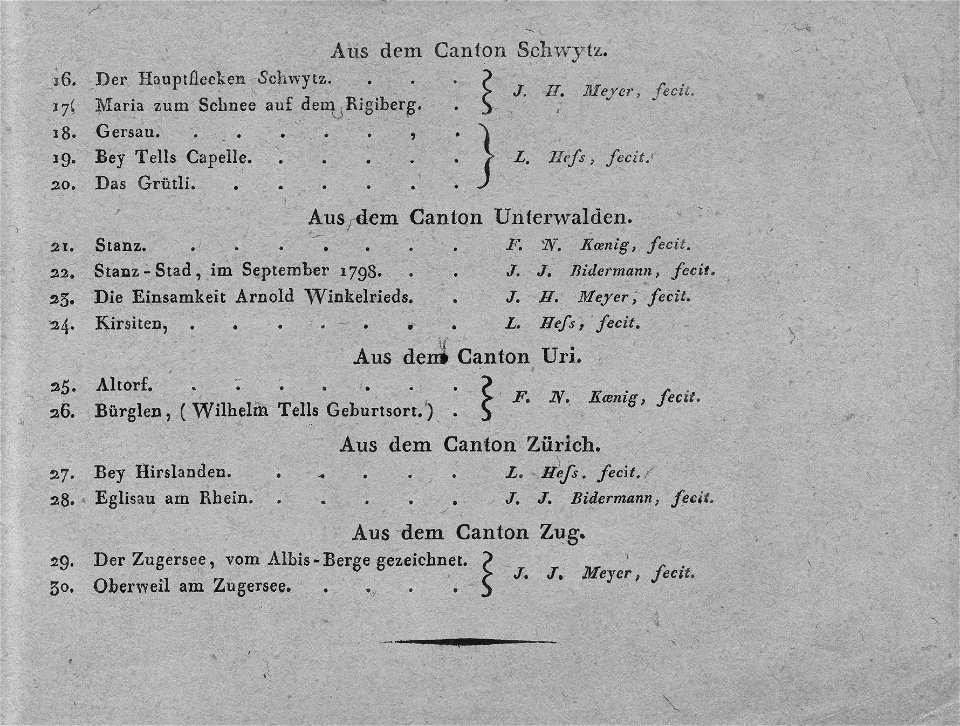 Aus dem Canton Schwytz.
16. Der Hauptflecken Schwytz. . . . } J. H. Meyer, fecit.
17. Maria zum Schnee auf dem Rigiberg. .
18. Gersau. . . . . . , .
19. Bey Tells Capelle. . . . . . } L. Heſs, fecit.
20. Das Grütli. . . . . . .
Aus dem Canton Unterwalden.
21. Stanz. . . . . . . . F. N. Kœnig, fecit.
22. Stanz-Stad, im September 1798. . . J. J. Bidermann, fecit.
23. Die Einsamkeit Arnold Winkelrieds. . J. H. Meyer, fecit.
24. Kirsiten, . . . . . . . L. Heſs, fecit.
Aus dem Canton Uri.
25. Altorf. . . . . . . . } F. N. Kœnig, fecit.
26. Bürglen, (Wilhelm Tells Geburtsort.) .
Aus dem Canton Zürich.
27. Bey Hirslanden. . . . . . L. Heſs. fecit.
28. Eglisau am Rhein. . . . . . J. J. Bidermann, fecit.
Aus dem Canton Zug.
29. Der Zugersee, vom Albis-Berge gezeichnet. } J. J. Meyer, fecit.
30. Oberweil am Zugersee. . . . .